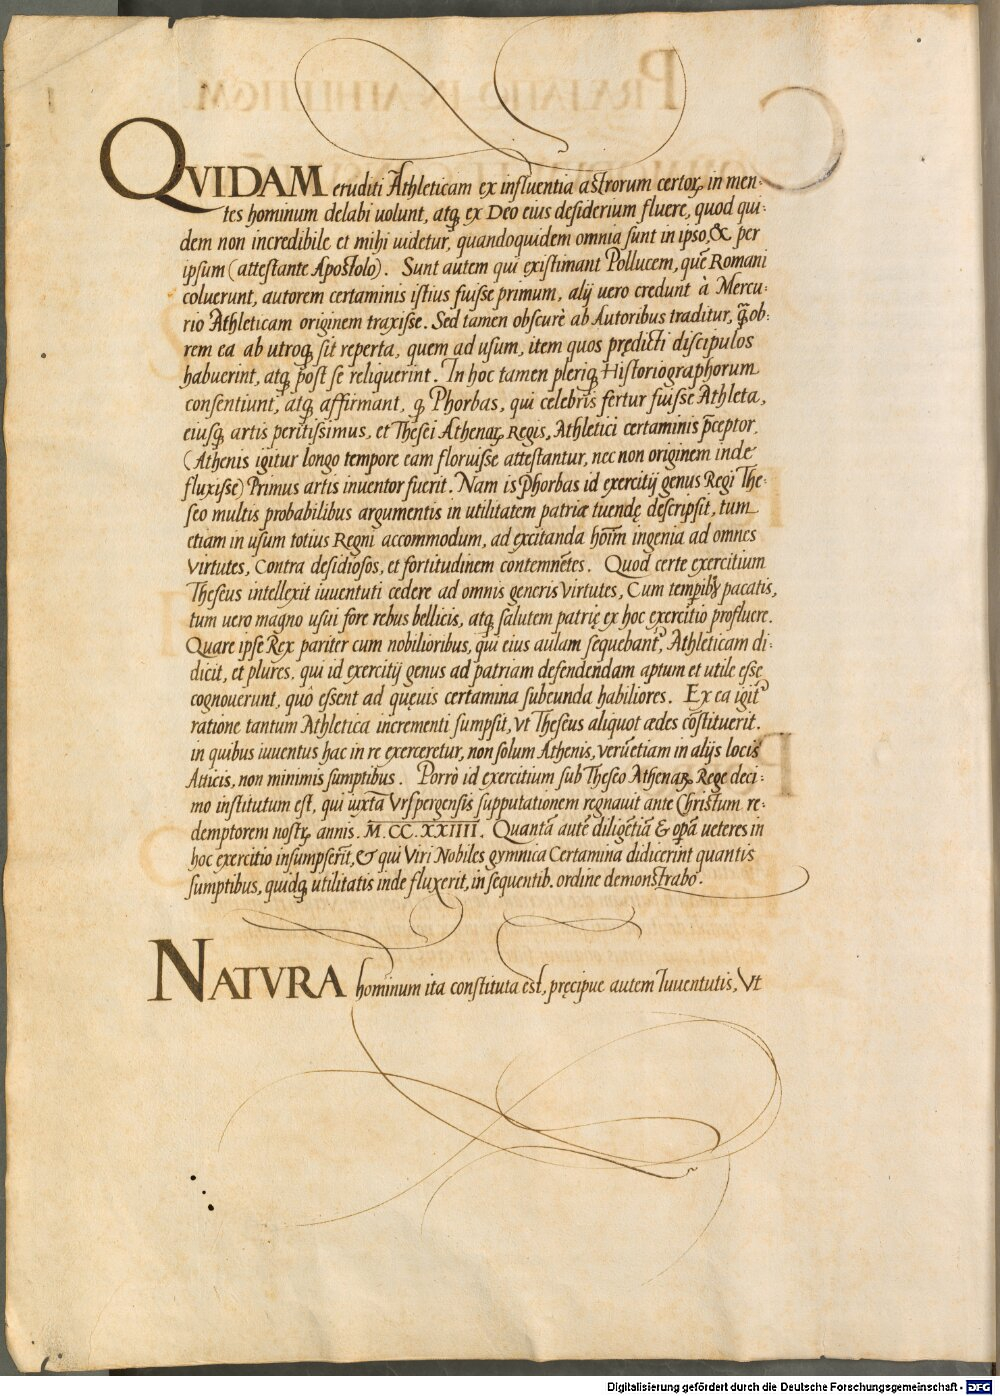 QVIDAM eruditi Athleticam ex influentia astrorum certoꝝ, in men-
tes hominum delabi uolunt, atqꝫ ex Deo eius desiderium fluere, quod qui-
dem non incredibile et mihi uidetur, quandoquidem omnia sunt in ipso, & per
ipsum (attestante Apostolo). Sunt autem qui existimant Pollucem, quẽ Romani
coluerunt, autorem certaminis istius fuisse primum, alij uero credunt à Mercu-
rio Athleticam originem traxisse. Sed tamen obscurè ab Autoribus traditur, quã ob-
rem ea ab utroqꝫ sit reperta, quem ad usum, item quos prędicti discipulos
habuerint, atqꝫ post se reliquerint. In hoc tamen pleriqꝫ Historiographorum
consentiunt, atqꝫ affirmant, ꝙ Phorbas, qui celebris fertur fuisse Athleta,
eiusqꝫ artis peritissimus, et Thesei Athenaꝝ Regis, Athletici certaminis p̃ceptor,
(Athenis igitur longo tempore eam floruisse attestantur, nec non originem inde
fluxisse) Primus artis inuentor fuerit. Nam is Phorbas id exercitij genus Regi The-
seo multis probabilibus argumentis in utilitatem patriæ tuendę descripsit, tum
etiam in usum totius Regni accommodum, ad excitanda hoĩm ingenia ad omnes
virtutes, Contra desidiosos, et fortitudinem contemnẽtes. Quod certe exercitium
Theseus intellexit iuuentuti cedere ad omnis generis virtutes, Cum tempibꝰ pacatis,
tum uero magno usui fore rebus bellicis, atqꝫ salutem patrię ex hoc exercitio profluere.
Quare ipse Rex pariter cum nobilioribus, qui eius aulam sequebantᷣ, Athleticam di-
dicit, et plures, qui id exercitij genus ad patriam defendendam aptum et utile esse
cognouerunt, quô essent ad quęuis certamina subeunda habiliores. Ex ea igitᷣ
ratione tantum Athletica incrementi sumpsit, vt Theseus aliquot ædes cõstituerit.
in quibus iuuentus hac in re exerceretur, non solum Athenis, verũetiam in alijs locis
Atticis, non minimis sumptibus. Porrò id exercitium sub Theseo Athenaꝝ Rege deci-
mo institutum est, qui iuxta Vrspergensis supputationem regnauit ante Christum re-
demptorem nostrꝝ annis. M.CC.XXIIII. Quantã autẽ diligẽtiã & opã ueteres in
hoc exercitio insumpserĩt, & qui Viri Nobiles gymnica Certamina didicerint quantis
sumptibus, quidqꝫ utilitatis inde fluxerit, in sequentib. ordine demonstrabo.
NATVRA hominum ita constituta est, pręcipue autem Iuuentutis, Vt
Digitalisierung gefördert durch die Deutsche Forschungsgemeinschaft - DFG